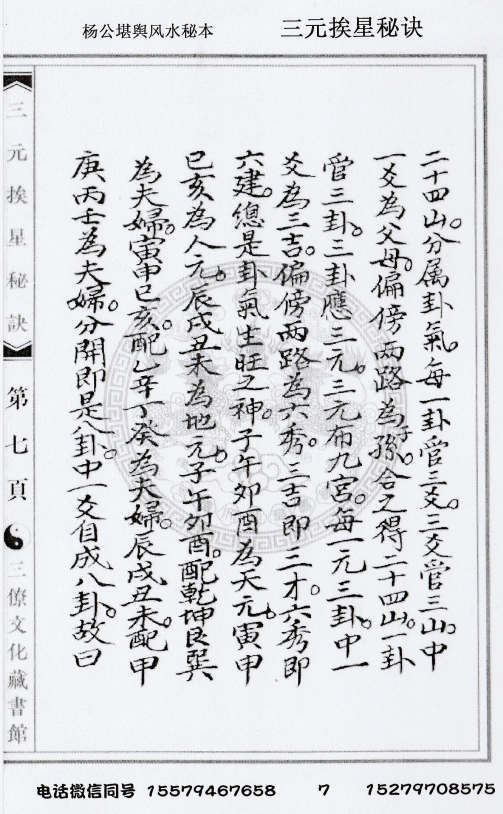 杨公堪舆风水秘本
三元挨星秘诀
二十四山。分属卦氣。每一卦管三爻。三爻管三山。中
一爻為父母。偏傍兩路為子孫。合之得二十四山。一卦
管三卦。三卦應三元。三元布九宮。每一元三卦。中一
爻為三吉。偏傍兩路為六秀。三吉即三才。六秀即
六建。總是卦氣生旺之神。子午卯酉為天元。寅申
巳亥為人元。辰戌丑未為地元。子午卯酉。配乾坤艮巽
為夫婦。寅申巳亥。配乙辛丁癸為夫婦。辰戌丑未。配甲
庚丙壬為夫婦。分開即是八卦。中一爻自成八卦。故曰
三元挨星秘訣
第七頁
三僚文化藏書館
电话微信同号 15579467658
7
15279708575